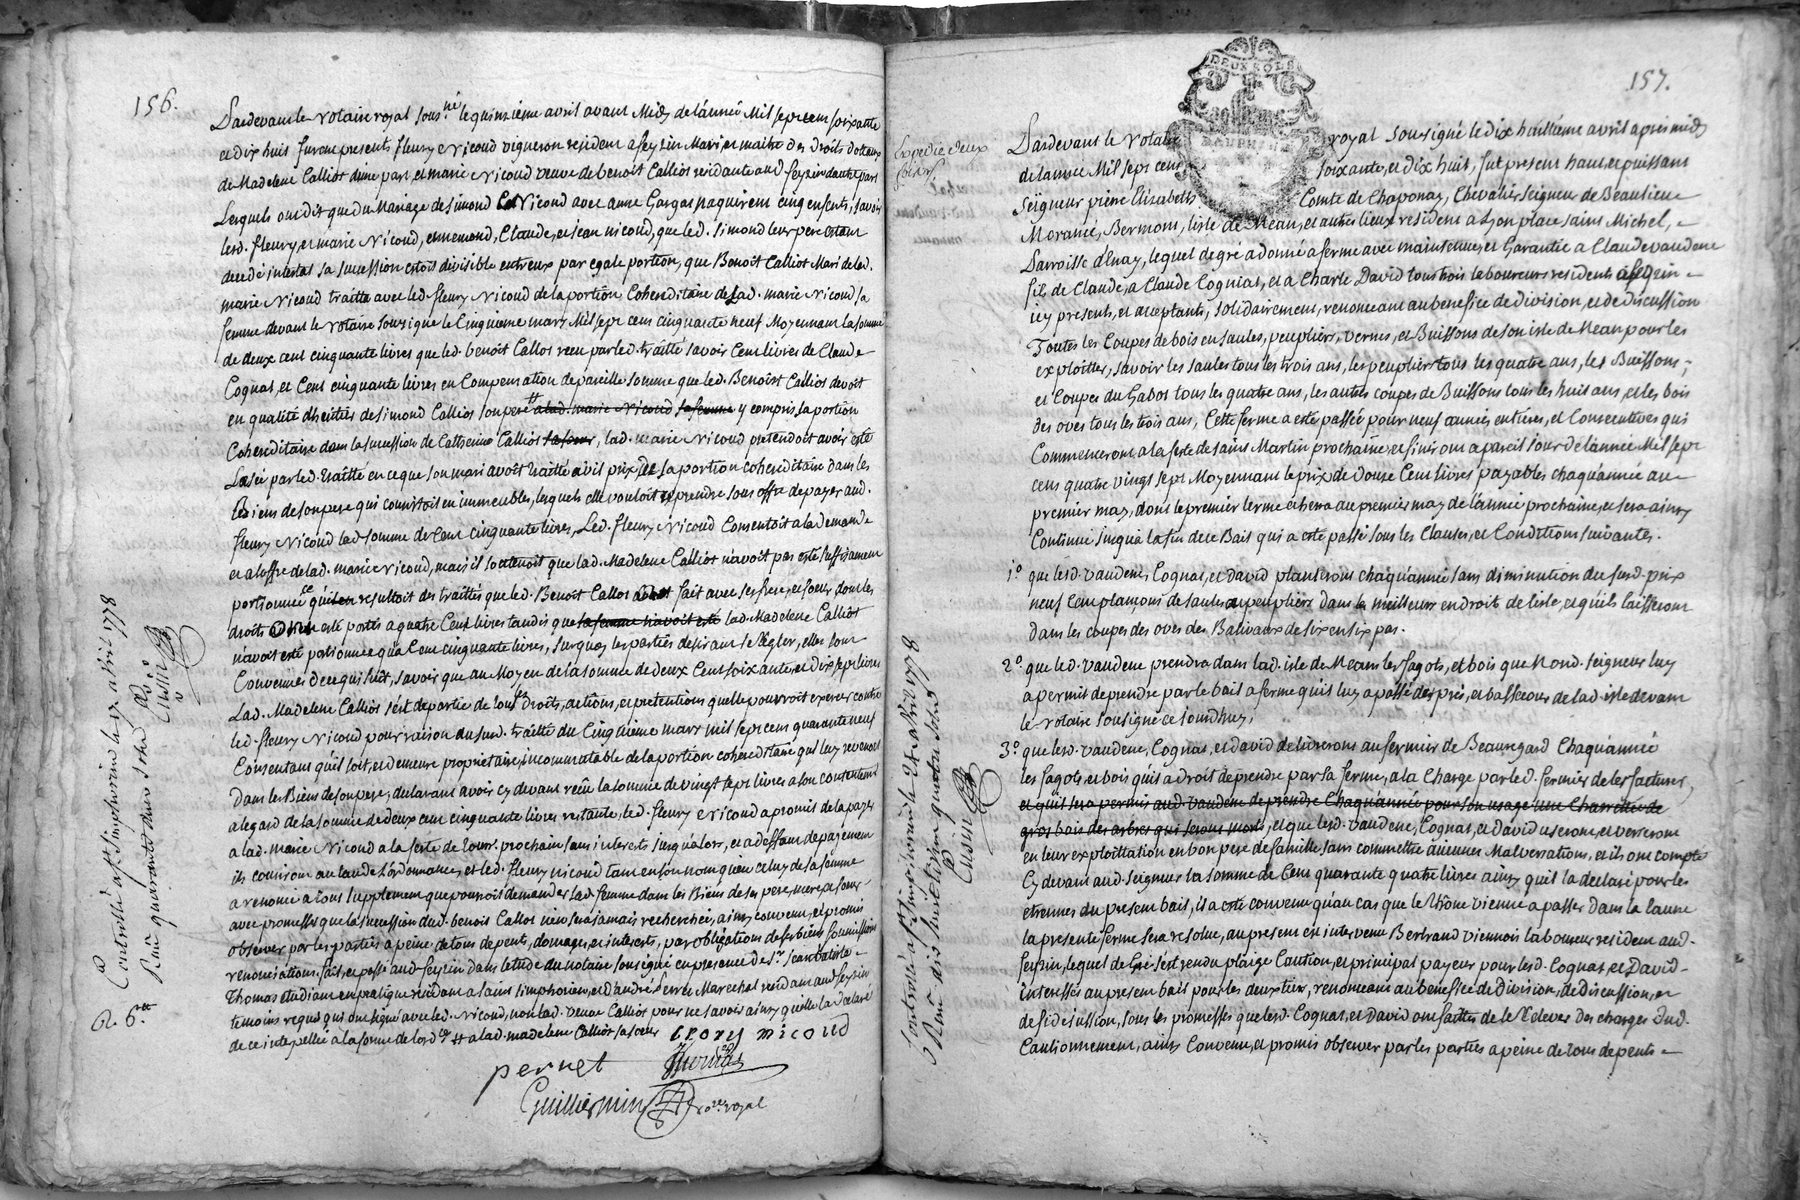 156.
Pardevant le Notaire royal sous.né le quinzieme avril avant Midy de lánnée Mil sept cent soixante
et dix huit furent presents fleury Nicoud vigneron resident a feyzin Mari et maitre des droits dotaux
de Madelene Calliot dúne part, et marie Nicoud veuve de benoit Calliot residante aud. feyzin dautre part
Lesquels ont dit que du Mariage de simond Nicoud avec anne Gargas naquirent cinq enfants, savoir
lesd. fleury, et marie Nicoud, ennemond, Claude, et jean nicoud, que led. simond leur pere etant
decedé intestat sa sucession etoit divisible entreux par egale portion, que Benoit Calliot Mari de lad.
marie Nicoud traitta avec led. fleury Nicoud de la portion Cohereditaire de lad. marie Nicoud sa
femme devant le Notaire soussigné le Cinquieme mars Mil sept cent cinquante neuf Moyennant la somme
de deux cent cinquante livres que led. benoit Callot recu par led. traitté savoir Cent livres de Claude
Cognat, et Cent cinquante livres en Compensation de pareille somme que led. Benoist Calliot devoit
en qualité dheritier de simond Calliot son pere # a lad. marie Nicoud sa femme y compris sa portion
Cohereditaire dans la sucession de Catherine Calliot sa soeur, lad. marie Nicoud pretendoit avoir eté
Lesée par led. traitté en ce que son mari avoit traitté a vil prix de sa portion cohereditaire dans les
Biens de son pere qui consistoit en immeubles, lesquels elle vouloit reprendre sous offre de payer aud.
fleury Nicoud lad. somme de Cent cinquante livres, Led. fleury Nicoud Consentoit a la demande
et a loffre de lad. marie Nicoud, mais il soutenoit que lad. Madelene Calliot návoit pas eté suffisament
portionnée ce qui resultoit des traittés que led. Benoit Callot fait avec ses frere, et soeur dont les
droits eté portés a quatre Cent livres tandis que sa femme návoit eté lad. Madelene Calliot
návoit eté portionnée quá Cent cinquante livres, surquoy les parties desirant se Regler, elles sont
Convenües de ce qui suit, savoir que au Moyen de la somme de deux Cent soixante, et dix sept livres
Lad. Madelene Calliot sést departie de tous ses droits, actions, et pretentions quelle pourroit exercer contre
led. fleury Nicoud pour raison du sud. traitté du Cinquieme mars mil sept cent quarante neuf
Consentant quíl soit, et demeure proprietaire incommutable de la portion cohereditaire qui luy revenoit
dans les Biens de son pere, declarant avoir cy devant reçû la somme de vingt sept livres a son contentement
a legard de la somme de deux cent cinquante livres restante, led. fleury Nicoud a promis de la payer
a lad. marie Nicoud a la feste de touss. prochain sans interets jusquálors, et a deffaut de payement
ils couriront au taux de lórdonnance, et led. fleury nicoud tant en son nom quén celuy de sa femme
a renoncé a tous supplement que pourroit demander lad. femme dans les Biens de ses pere, mere, et soeur
avec promesse que la sucession dud. benoit Callot nén sera jamais recherchée, ainsy convenu, et promis
observer par les parties a peine de tous depens, domages, et interets, par obligations de ses biens, soumissions
renonciations. fait, et passé aud. feyzin dans létude du notaire soussigné en presence de s.r Jean batiste
Thomas etudiant en pratique residant a saint simphorien, et dándré Pernet Marechal residant aud. feyzin
temoins requis qui ont signé avec led. Nicoud, non lad. veuve Calliot pour ne savoir ainsy quélle la declaré
de ce interpellée a la forme de lord.ce # a lad. madelene Calliot sa soeur
fleury nicoud
pernet Thomas
Guilliermin no.re royal
Controllé a s.t simphorien le 17. avril 1778
Recu quarante deux sols
Cusin
R. 6.tt
157.
DEUX SOLS
DAUPHINE
Expedié deux
fois
Pardevant le Notaire royal soussigné le dix huitieme avril apres midy
de lánnée Mil sept cent soixante, et dix huit, fut present haut et puissant
Seigneur pierre Elizabeth Comte de Chaponay, Chevalier Seigneur de Beaulieu
Morancé, Bermont, lisle de Mean, et autres lieux resident a Lyon place saint Michel,
Parroisse dÉnay, lequel de gré a donné a ferme avec maintenue, et Garantie a Claude vaudene
fils de Claude, a Claude Cogniat, et a Charle David tous trois laboureurs residents a feyzin
icy presents, et acceptants, solidairement, renonceant au benefice de division, et de discussion
Toutes les Coupes de bois en saules, peupliers, vernes, et Buissons de son isle de Mean pour les
exploitter, savoir les saules tous les trois ans, les peupliers tous les quatre ans, les Buissons,
et Coupes du Gabot tous les quatre ans, les autres coupes de Buissons tous les huit ans, et les bois
des oves tous les trois ans, Cette ferme a eté passée pour neuf années entieres, et Consecutives qui
Commenceront a la feste de saint Martin prochaine, et finiront a pareil jour de lánnée Mil sept
cens quatre vingt sept Moyennant le prix de douse Cent livres payables chaquánnée au
premier may, dont le premier terme echera au premier may de lánnée prochaine, et sera ainsy
Continué jusquá la fin de ce Bail qui a eté passé sous les Clauses, et Conditions suivantes.
1.o que lesd. vaudene, Cognat, et David planteront chaquánnée sans diminution du susd. prix
neuf Cent plançons de saules ou peupliers dans le meilleur endroit de lisle, et quíls laisseront
dans les coupes des oves des Balivaux de six en six pas.
2.o que led. vaudene prendra dans lad. isle de Mean les fagots, et bois que Mond. seigneur luy
a permit de prendre par le bail a ferme quíl luy a passé des prés, et basse cour de lad. isle devant
le Notaire soussigné ce jourdhuy,
3.o que lesd. vaudene, Cognat, et david delivreront au fermier de Beauregard Chaquánnée
les fagots, et bois quíl a droit de prendre par sa ferme, a la Charge par led. fermier de les facturer,
et quíl sera permis aud. vaudene de prendre Chaquánnée pour son usage une Charretée de
gros bois des arbres qui seront morts, et que lesd. vaudene, Cognat, et David useront, et verseront
en leur exploittation en bon pere de famille sans commettre aucunes Malversations, et ils ont compté
Cy devant aud. seigneur la somme de Cent quarante quatre livres ainsy quíl la declaré pour les
etrennes du present bail, il a eté convenu quáu cas que le Rhône vienne a passer dans la laune
la presente ferme sera resolue, au present est intervenu Bertrand viennois laboureur resident aud.
feyzin, lequel de Gré sést rendu plaige Caution, et principal payeur pour lesd. Cognat, et David
interessés au present bail pour les deux tiers, renonceant au benefice de Division, de Discussion, et
de fidejussion, sous les promesses que lesd. Cognat, et David ont faittes de le Relever des charges dud.
Cautionnement, ainsy Convenu, et promis observer par les parties a peine de tous depents
Controllé a s.t simphorien le 24 avril 1778
Recu dix huit livres quatre sols
Cusin